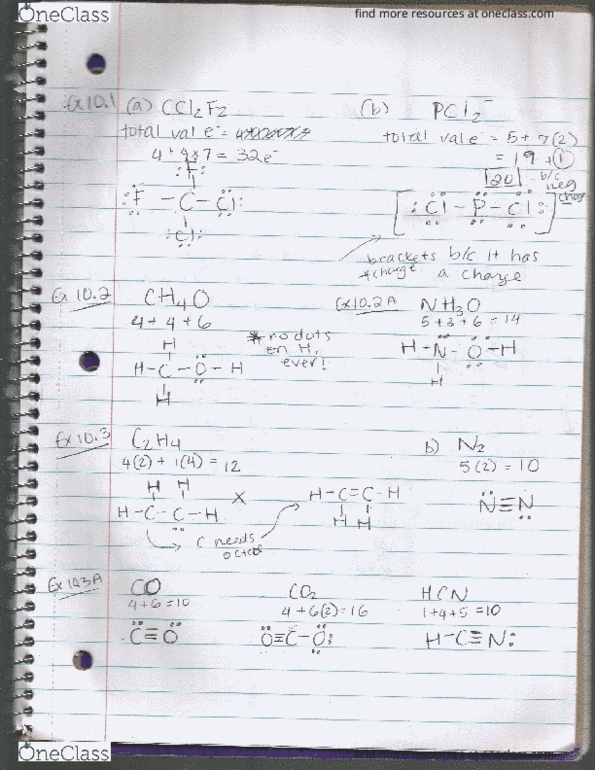 OneClass
find more resources at oneclass.com
Ex 10.1 (a) CCl2F2
total val e⁻ =
4 + 4x7 = 32e⁻
:F:
:F – C – Cl:
:Cl:
(b) PCl2⁻
total val e⁻ = 5 + 7(2)
= 19 + 1
20 b/c neg charge
[:Cl – P – Cl:]
brackets b/c it has
*charge a charge
Ex 10.2 CH4O
4 + 4 + 6
H
H – C – O – H
H
* no dots
on H,
ever!
Ex 10.2A NH3O
5 + 3 + 6 = 14
H – N – O – H
H
Ex 10.3 C2H4
4(2) + 1(4) = 12
H H
H – C – C – H X
C needs
octet
H – C = C – H
H H
b) N2
5(2) = 10
N≡N
Ex 10.3A CO
4 + 6 = 10
C≡O
CO2
4 + 6(2) = 16
O≡C – O:
HCN
1 + 4 + 5 = 10
H – C≡N:
OneClass